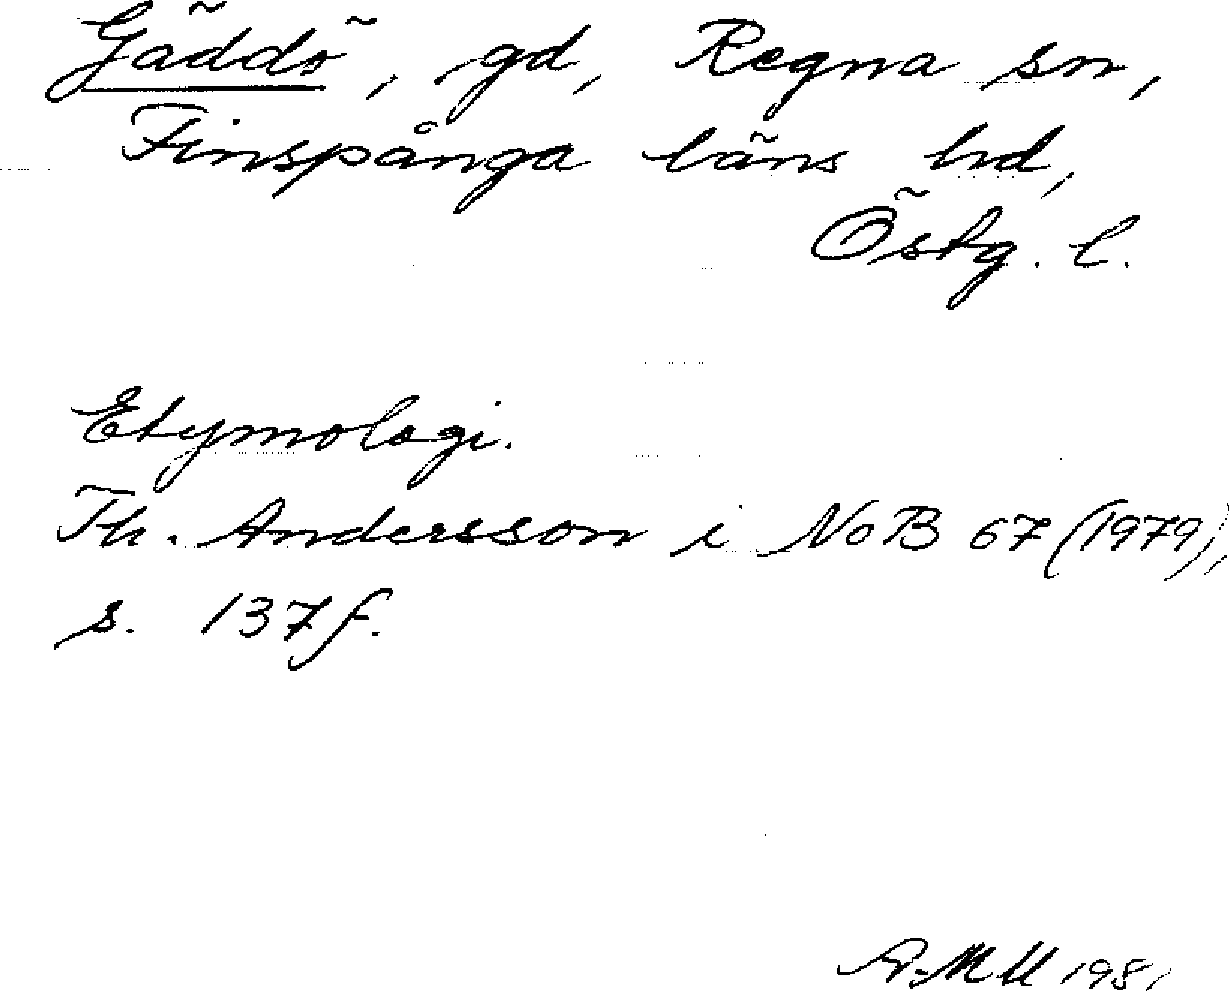 Gäddö, gd, Regna sn,
Finspånga läns hd,
Östg. l.
Etymologi.
Th. Andersson i NoB 67 (1979),
s. 137 f.
A-MU 1981